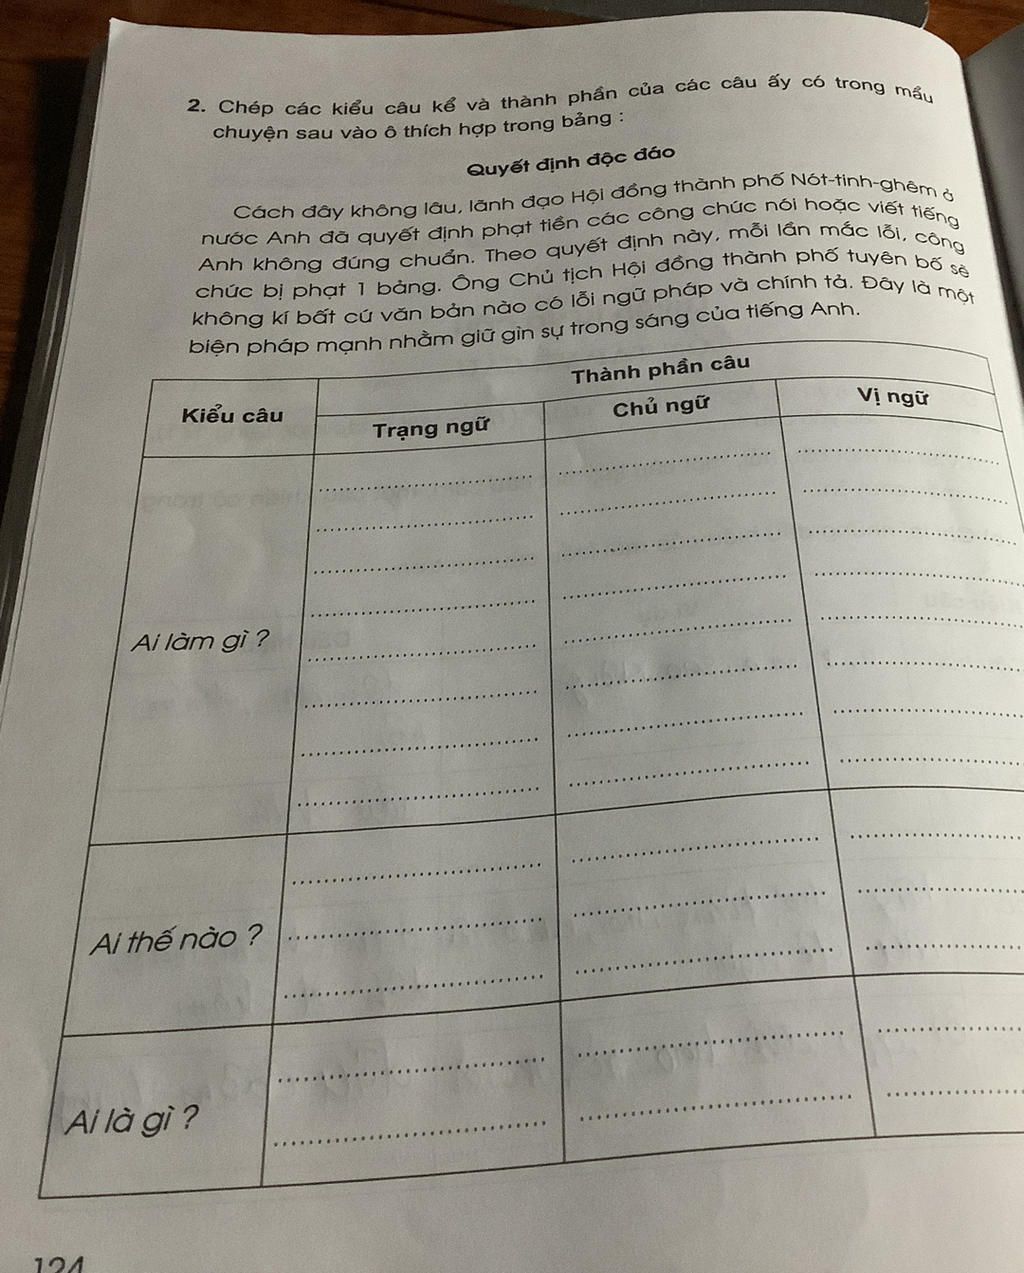 2. Chép các kiểu câu kể và thành phần của các câu ấy có trong mẩu
chuyện sau vào ô thích hợp trong bảng :
Quyết định độc đáo
Cách đây không lâu, lãnh đạo Hội đồng thành phố Nót-tinh-ghêm ở
nước Anh đã quyết định phạt tiền các công chức nói hoặc viết tiếng
Anh không đúng chuẩn. Theo quyết định này, mỗi lần mắc lỗi, công
chức bị phạt 1 bảng. Ông Chủ tịch Hội đồng thành phố tuyên bố sẽ
không kí bất cứ văn bản nào có lỗi ngữ pháp và chính tả. Đây là một
biện pháp mạnh nhằm giữ gìn sự trong sáng của tiếng Anh.
Kiểu câu
Thành phần câu
Trạng ngữ
Chủ ngữ
Vị ngữ
Ai làm gì ?
Ai thế nào ?
Ai là gì ?
124